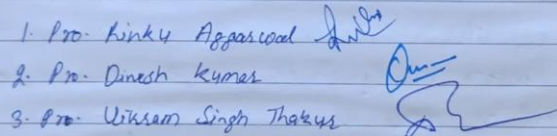 1. Pro. Rinku Aggarwal
2. Pro. Dinesh Kumar
3. Pro. Vikram Singh Thakur